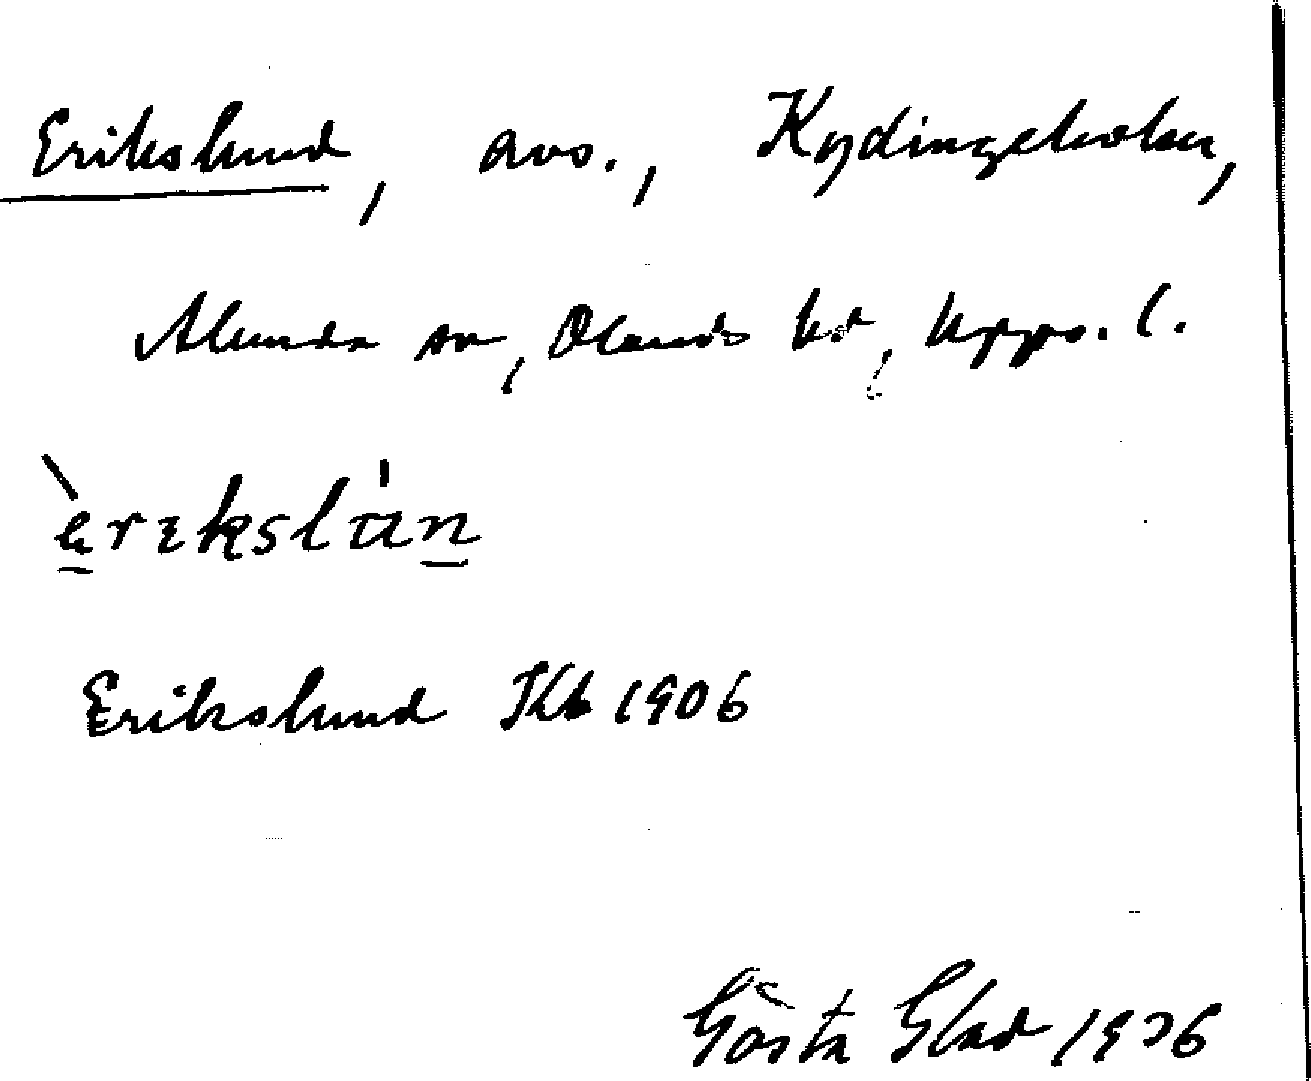 Erikslund, avs., Kydingeholm,
Alunda sn, Olands hd, Upps. l.
èrɩkslun
Erikslund Kb 1906
Gösta Blad 1936